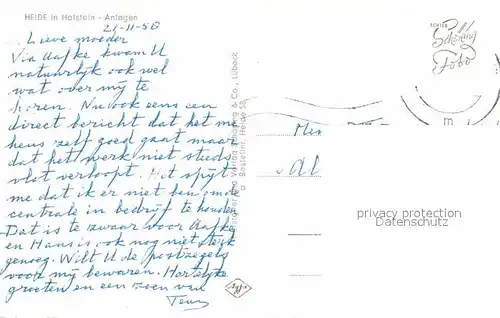 HEIDE in Holstein - Anlagen
21-11-58
Lieve moeder
Via Aafke kwam U
natuurlijk ook wel
wat over mij te
horen. Nu ook eens een
direct bericht dat het me
heus zelf goed gaat maar
dat het werk niet steeds
vlot verloopt. Het spijt
me dat ik er niet ben om de
centrale in bedrijf te houden
Dat is te zwaar voor Aafke
en Hans is ook nog niet sterk
genoeg. Wilt U de postzegels
voor mij bewaren. Hartelijke
groeten en een zoen van
Teun
Schöning & Co., Lübeck
Bestellnr. Heide 58
ECHTER
Schöning
Foto
m
Agfa
privacy protection
Datenschutz